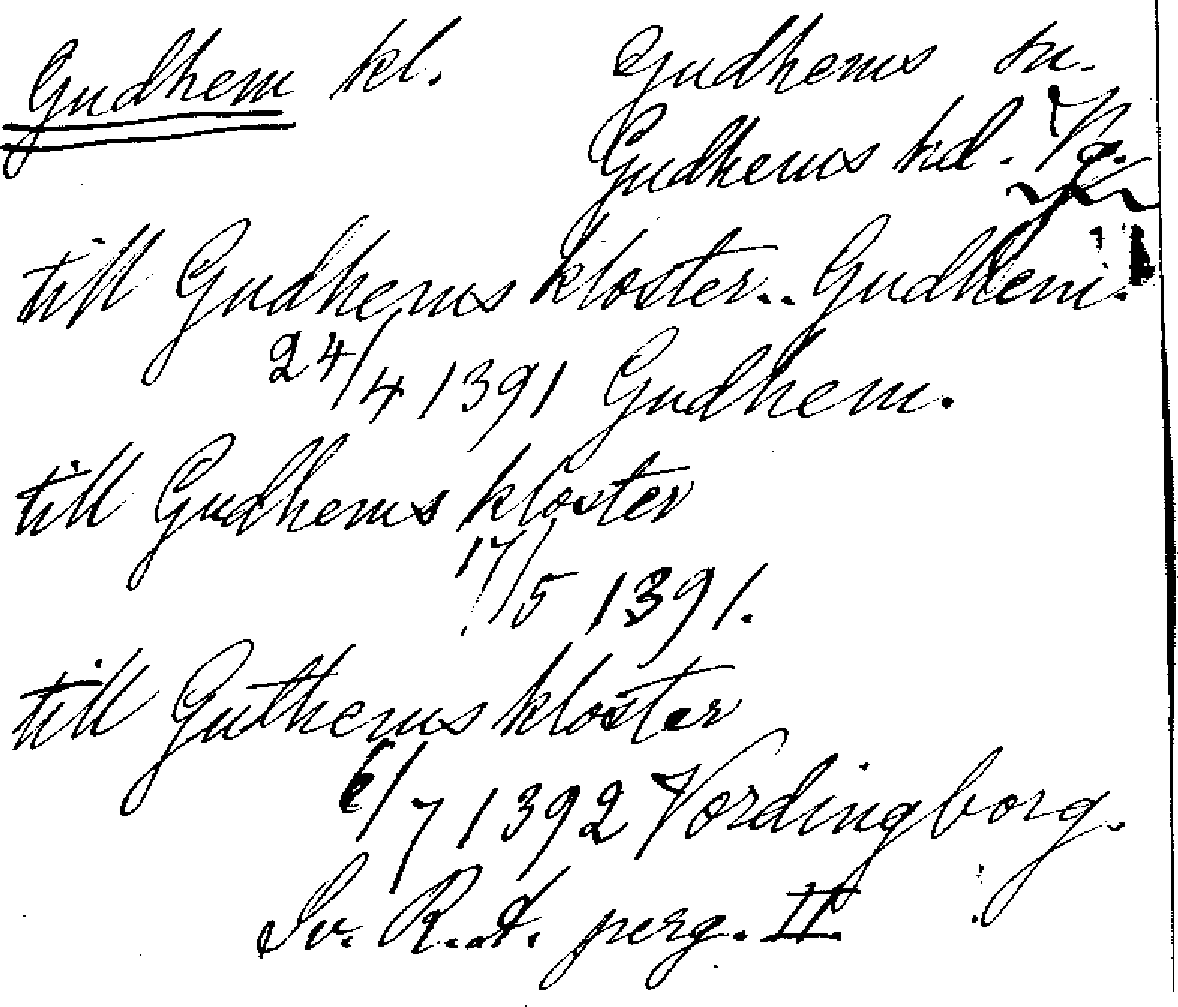 Gudhem kl. Gudhems sn.
Gudhems hd. Vg.
till Gudhems kloster.. Gudhem.
24/4 1391 Gudhem.
till Gudhems kloster
17/5 1391.
till Guthems kloster
6/7 1392 Vordingborg.
Sv. R.A. perg. II.